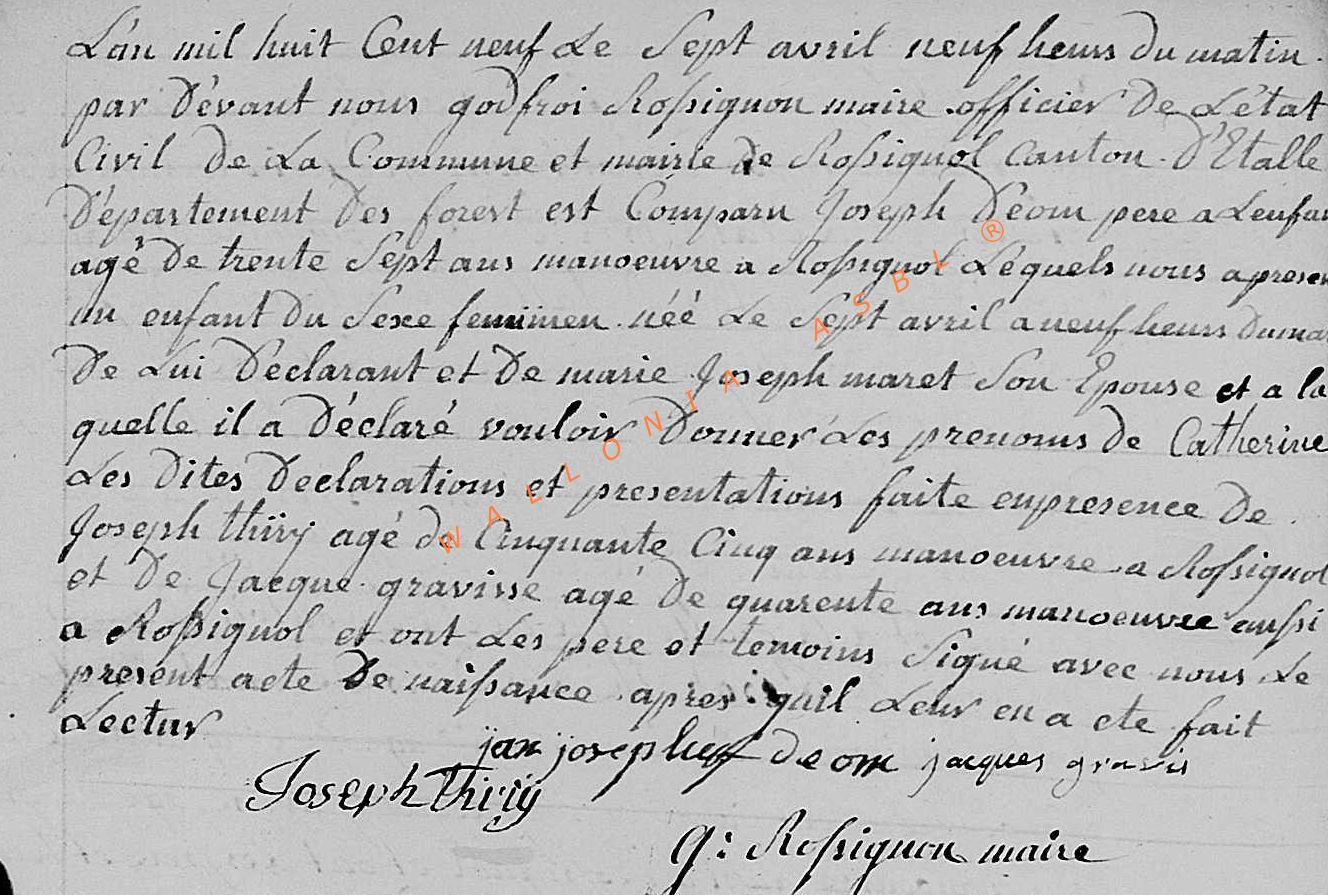 L'an mil huit Cent neuf Le Sept avril neuf heurs du matin.
par Dévant nous godfroi Rossignon maire officier De L'état
Civil De La Commune et mairie de Rossignol Canton D'Etalle
Département Des forest est Comparu Joseph Déom pere a Lenfan
agé De trente Sept ans manoeuvre a Rossignol Léquels nous a presen
un enfant Du Sexe feminen néé Le Sept avril a neuf heurs du ma
De Lui Déclarant et De marie Joseph maret Son Epouse et a la
quelle il a Déclaré vouloir Donner Les prenoms de Catherine
Les Dites Declarations et presentations faite enpresence De
Joseph thiry agé de Cinquante Cinq ans manoeuvre a Rossignol
et De Jacque gravisse agé De quarente ans manoeuvre aussi
a Rossignol et ont Les pere et temoins Signé avec nous Le
present acte De naissance apres quil Leur en a ete fait
Lectur
jan joseph deom jacques gravis
Joseph Thiry
g: Rossignon maire
WALLONIA ASBL ®